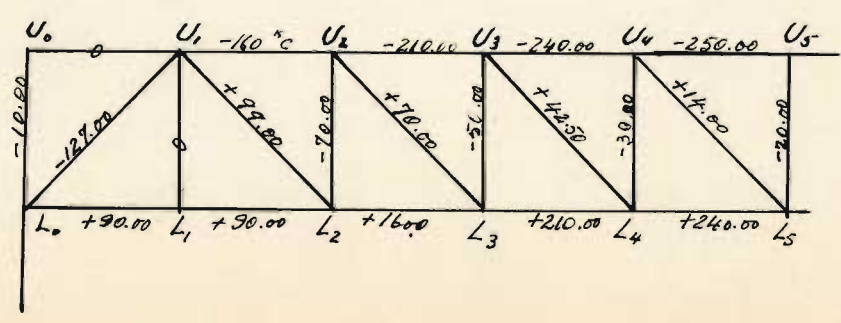 U₀ U₁ U₂ U₃ U₄ U₅
0 -160 ᴷC -210.00 -240.00 -250.00
-10.00 -127.00 0 +99.00 -70.00 +70.00 -50.00 +42.50 -30.00 +14.00 -20.00
L₀ +90.00 L₁ +90.00 L₂ +1600 L₃ +210.00 L₄ +240.00 L₅